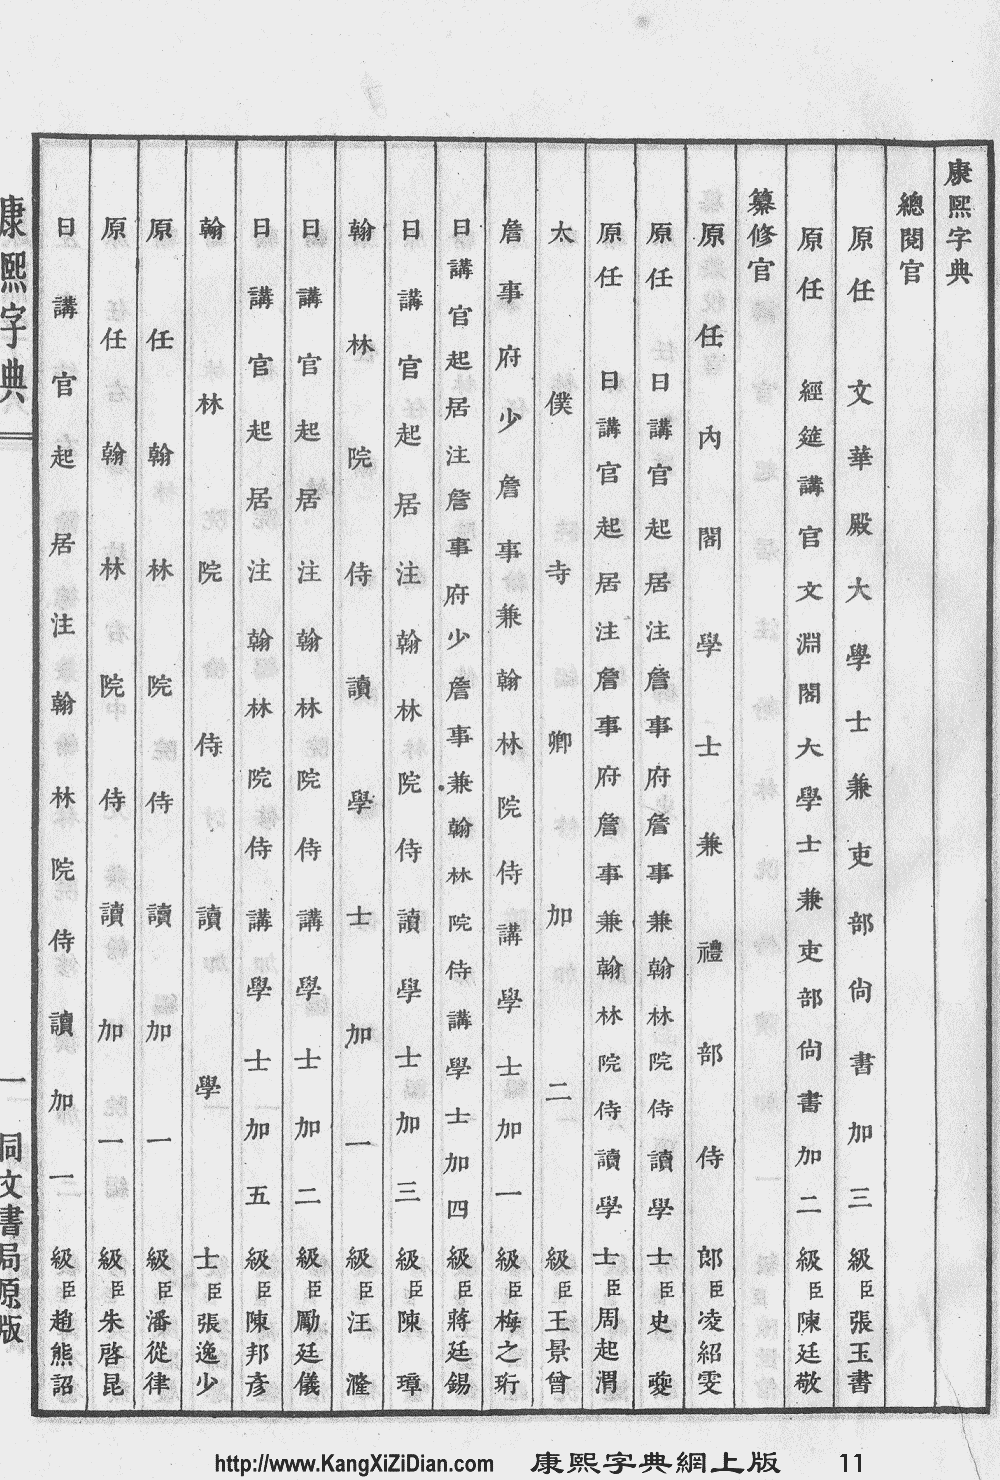 康熙字典
總閱官
原任文華殿大學士兼吏部尙書加三級臣張玉書
原任經筵講官文淵閣大學士兼吏部尙書加二級臣陳廷敬
纂修官
原任內閣學士兼禮部侍郎臣凌紹雯
原任日講官起居注詹事府詹事兼翰林院侍讀學士臣史夔
原任日講官起居注詹事府詹事兼翰林院侍讀學士臣周起渭
太僕寺卿加二級臣王景曾
詹事府少詹事兼翰林院侍講學士加一級臣梅之珩
日講官起居注詹事府少詹事兼翰林院侍講學士加四級臣蔣廷錫
日講官起居注翰林院侍讀學士加三級臣陳璋
翰林院侍讀學士加一級臣汪漋
日講官起居注翰林院侍講學士加二級臣勵廷儀
日講官起居注翰林院侍講學士加五級臣陳邦彥
翰林院侍讀學士臣張逸少
原任翰林院侍讀加一級臣潘從律
原任翰林院侍讀加一級臣朱啓昆
日講官起居注翰林院侍讀加一級臣趙熊詔
康熙字典
一
同文書局原版
http://www.KangXiZiDian.com 康熙字典網上版 11